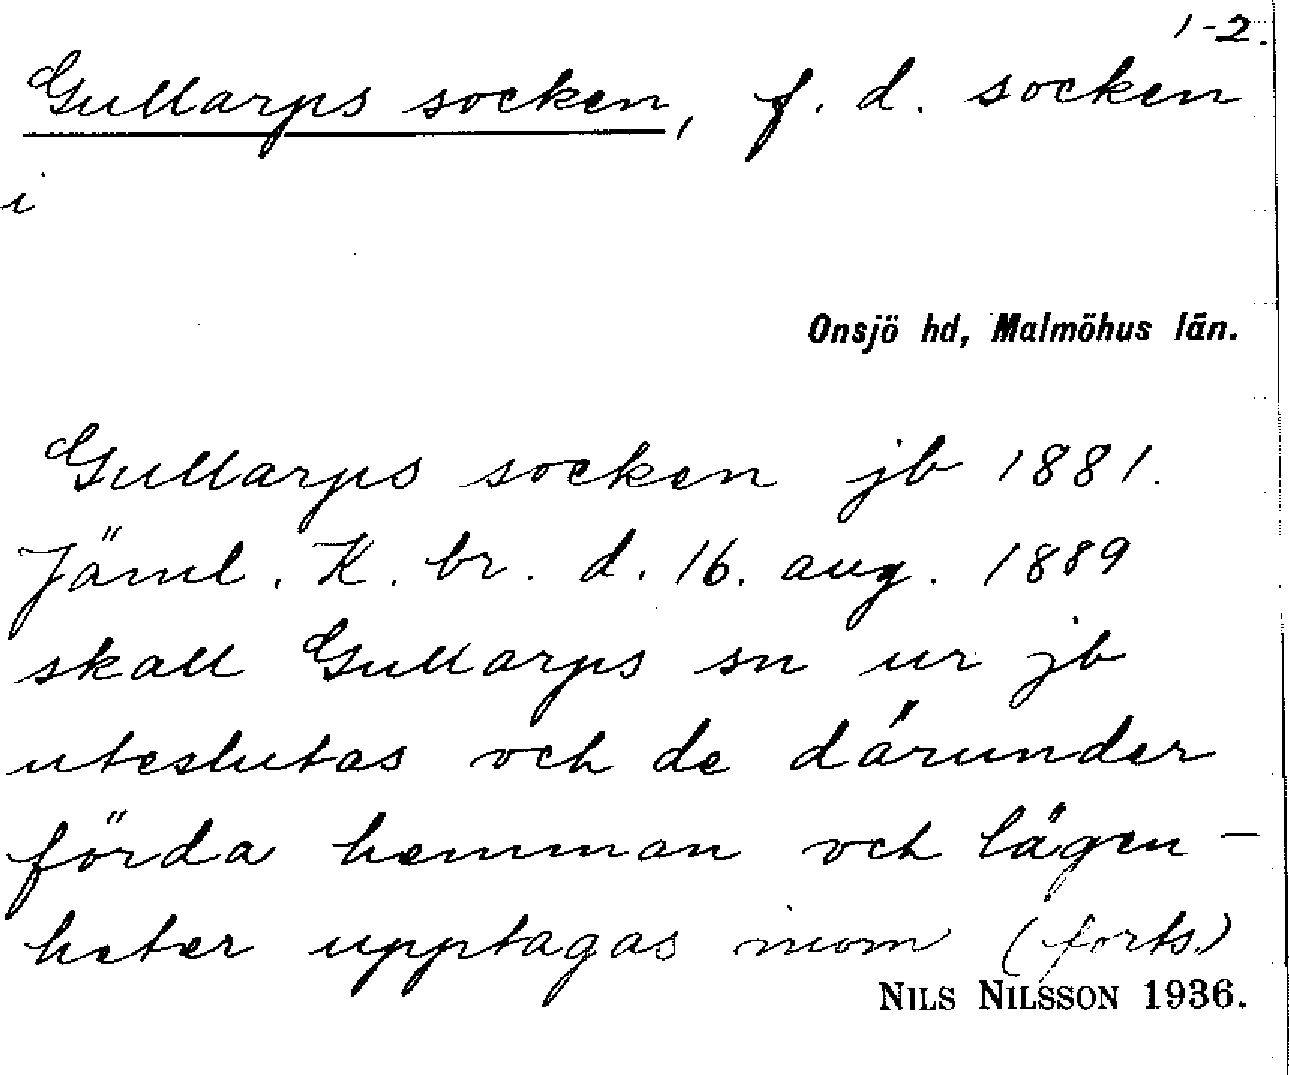 1-2.
Gullarps socken, f. d. socken
i
Onsjö hd, Malmöhus län.
Gullarps socken jb 1881.
Jäml. K. br. d. 16. aug. 1889
skall Gullarps sn ur jb
uteslutas och de därunder
förda hemman och lägen-
heter upptagas inom (forts)
NILS NILSSON 1936.